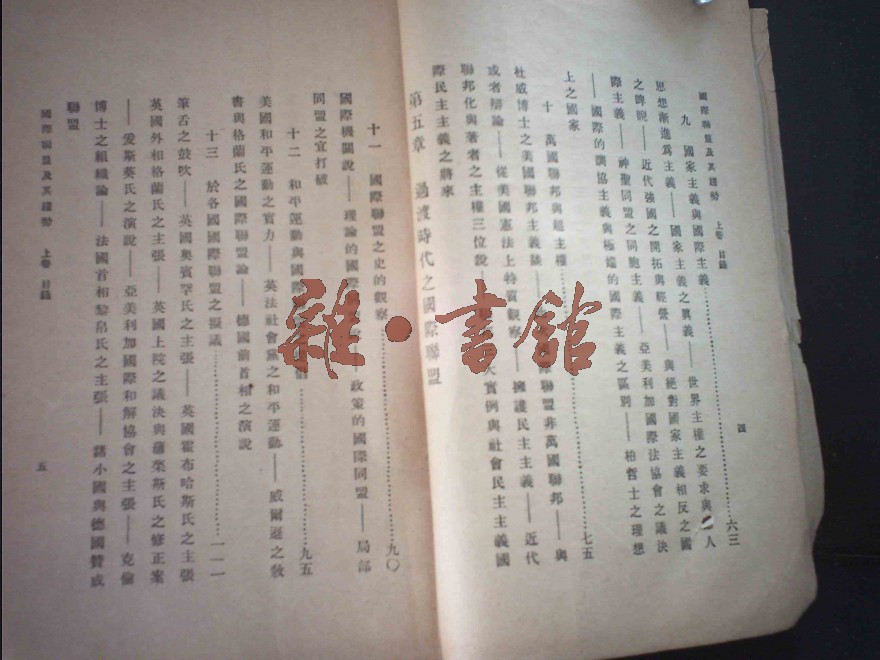 國際聯盟及其趨勢 上卷 目錄
四
九 國家主義與國際主義……六三
思想漸進爲主義——國家主義之異義——世界主權之要求與 人
之睥睨——近代強國之開拓與經營——與絕對國家主義相反之國
際主義——神聖同盟之同胞主義——亞美利加國際法協會之議決
——國際的調協主義與極端的國際主義之區別——柏哲士之理想
上之國家
十 萬國聯邦與超主權……七五
杜威博士之美國聯邦主義談—— 聯盟非萬國聯邦——與
或者辯論——從美國憲法上特質觀察——擁護民主主義——近代
聯邦化與著者之主權三位說—— 大實例與社會民主主義國
際民主主義之將來
第五章 過渡時代之國際聯盟
十一 國際聯盟之史的觀察……九〇
國際機關說——理論的國際 政策的國際同盟——局部
同盟之宜打破
十二 和平運動與國際 九五
美國和平運動之實力——英法社會黨之和平運動——威爾遜之敎
書與格蘭氏之國際聯盟論——德國前首相之演說
十三 於各國國際聯盟之擬議……一一一
筆舌之鼓吹——英國奧賓罕氏之主張——英國霍布哈斯氏之主張
英國外相格蘭氏之主張——英國上院之議決與蒲萊斯氏之修正案
——爱斯葵氏之演說——亞美利加國際和解協會之主張——克倫
博士之組織論——法國首相黎帛氏之主張——諸小國與德國贊成
聯盟
國際聯盟及其趨勢 上卷 目錄
五
雜·書館